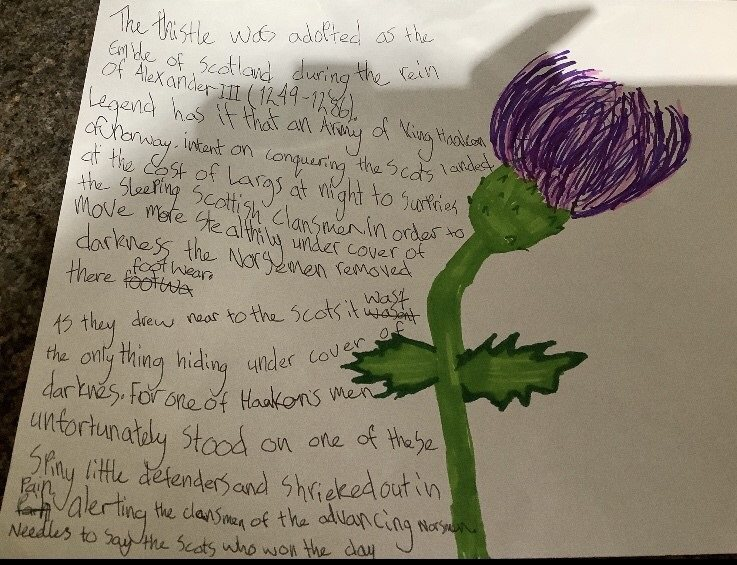 The thistle was adopted as the
Emble of Scotland during the rein
of Alexander III (1249-1286).
Legend has it that an Army of King Haakon
of Norway, intent on conquering the Scots landed
at the cost of Largs at night to Surfries
the sleeping Scottish Clansmen. In order to
move more stealthily under cover of
darkness the Norsemen removed
there footwa footwear.
As they drew near to the Scots it wasent wast
the only thing hiding under cover of
darknes. For one of Haakon's men
unfortunately Stood on one of these
Spiny little defenders and shrieked out in
Pain alerting the clansmen of the advancing Norsmen
Needles to say the Scots who won the day